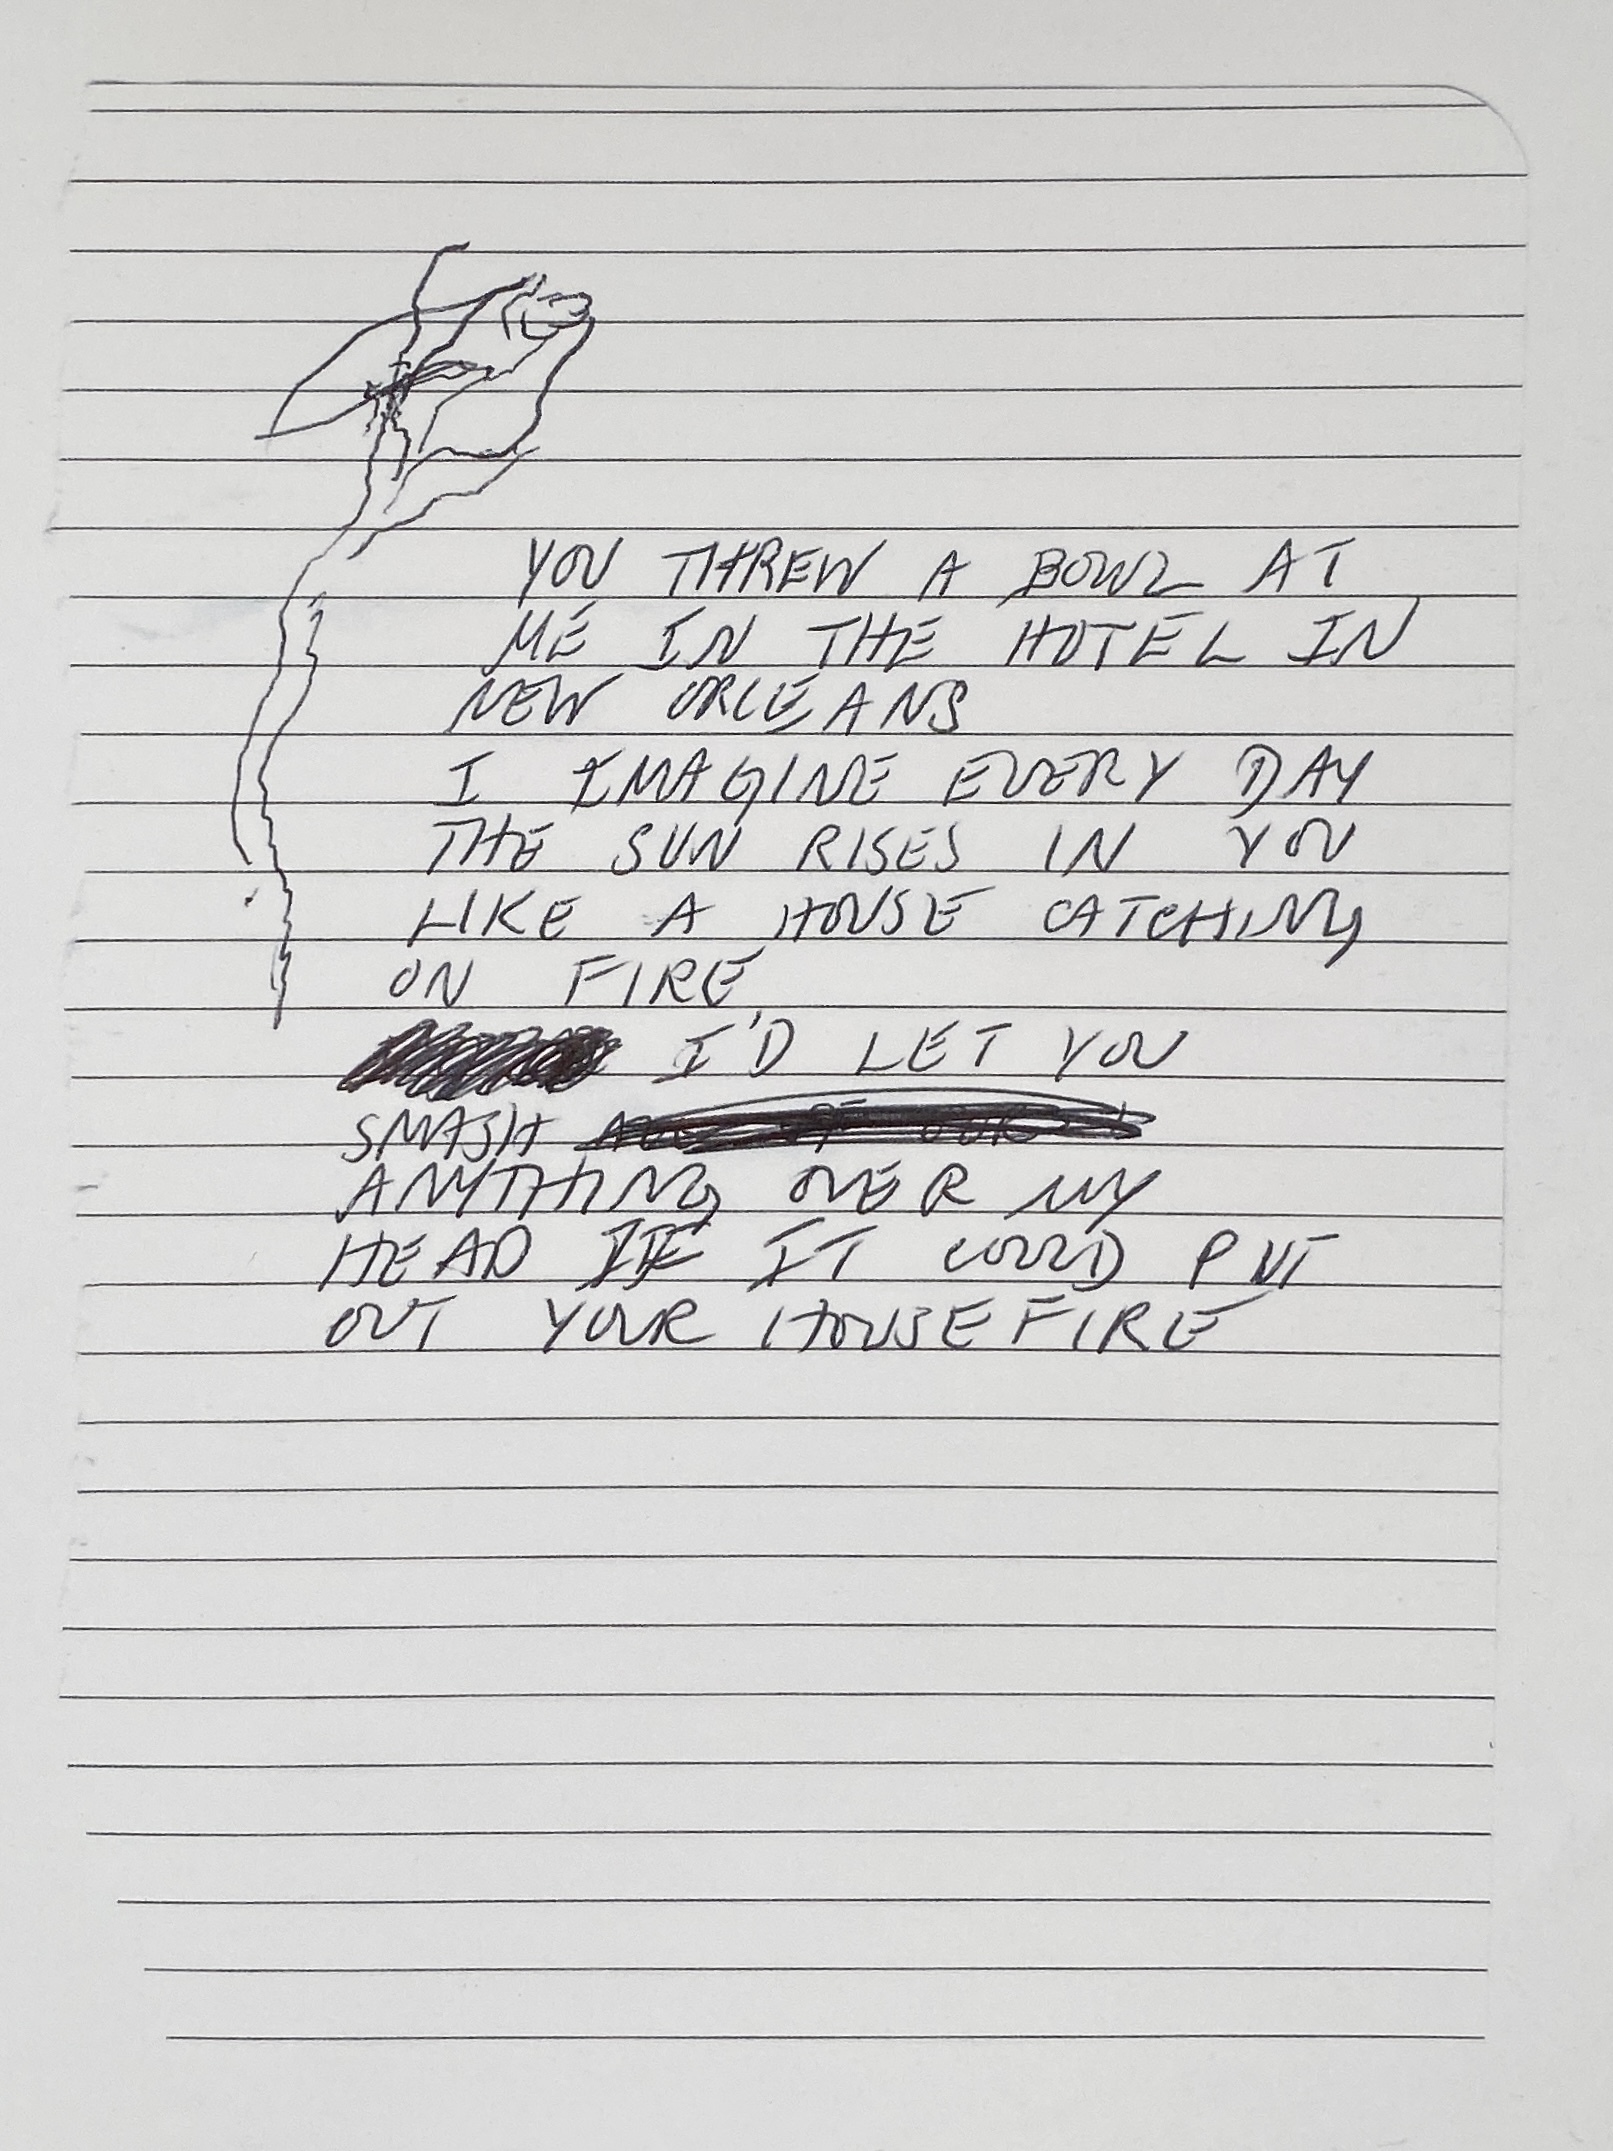 YOU THREW A BOWL AT
ME IN THE HOTEL IN
NEW ORLEANS
I IMAGINE EVERY DAY
THE SUN RISES IN YOU
LIKE A HOUSE CATCHING
ON FIRE
I'D LET YOU
SMASH
ANYTHING OVER MY
HEAD IF IT COULD PUT
OUT YOUR HOUSEFIRE